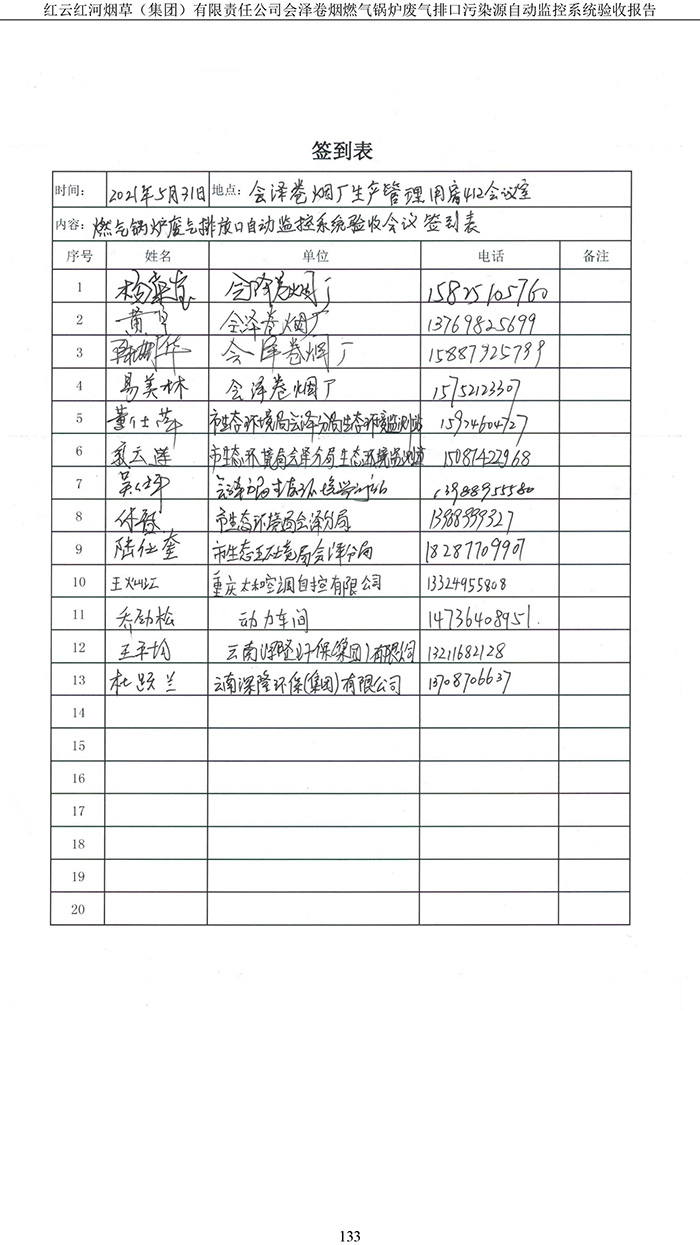 红云红河烟草（集团）有限责任公司会泽卷烟燃气锅炉废气排口污染源自动监控系统验收报告
签到表
时间： 2021年5月31日 地点： 会泽卷烟厂生产管理用房412会议室
内容：燃气锅炉废气排放口自动监控系统验收会议签到表
序号 姓名 单位 电话 备注
1 会泽卷烟厂 15825105760
2 会泽卷烟厂 13769825699
3 会泽卷烟厂
4 易美林 会泽卷烟厂 15752123307
5 董仕萍 市生态环境局会泽分局生态环境监测站 15924604727
6 市生态环境局会泽分局生态环境监测站 15087422968
7 13988955580
8 市生态环境局会泽分局
9 陆仕奎 市生态环境局会泽分局 18287709907
10 重庆太和空调自控有限公司 13324955808
11 乔劲松 动力车间 14736408951
12 云南深隆环保(集团)有限公司 13211682128
13 云南深隆环保(集团)有限公司 13708706637
14
15
16
17
18
19
20
133